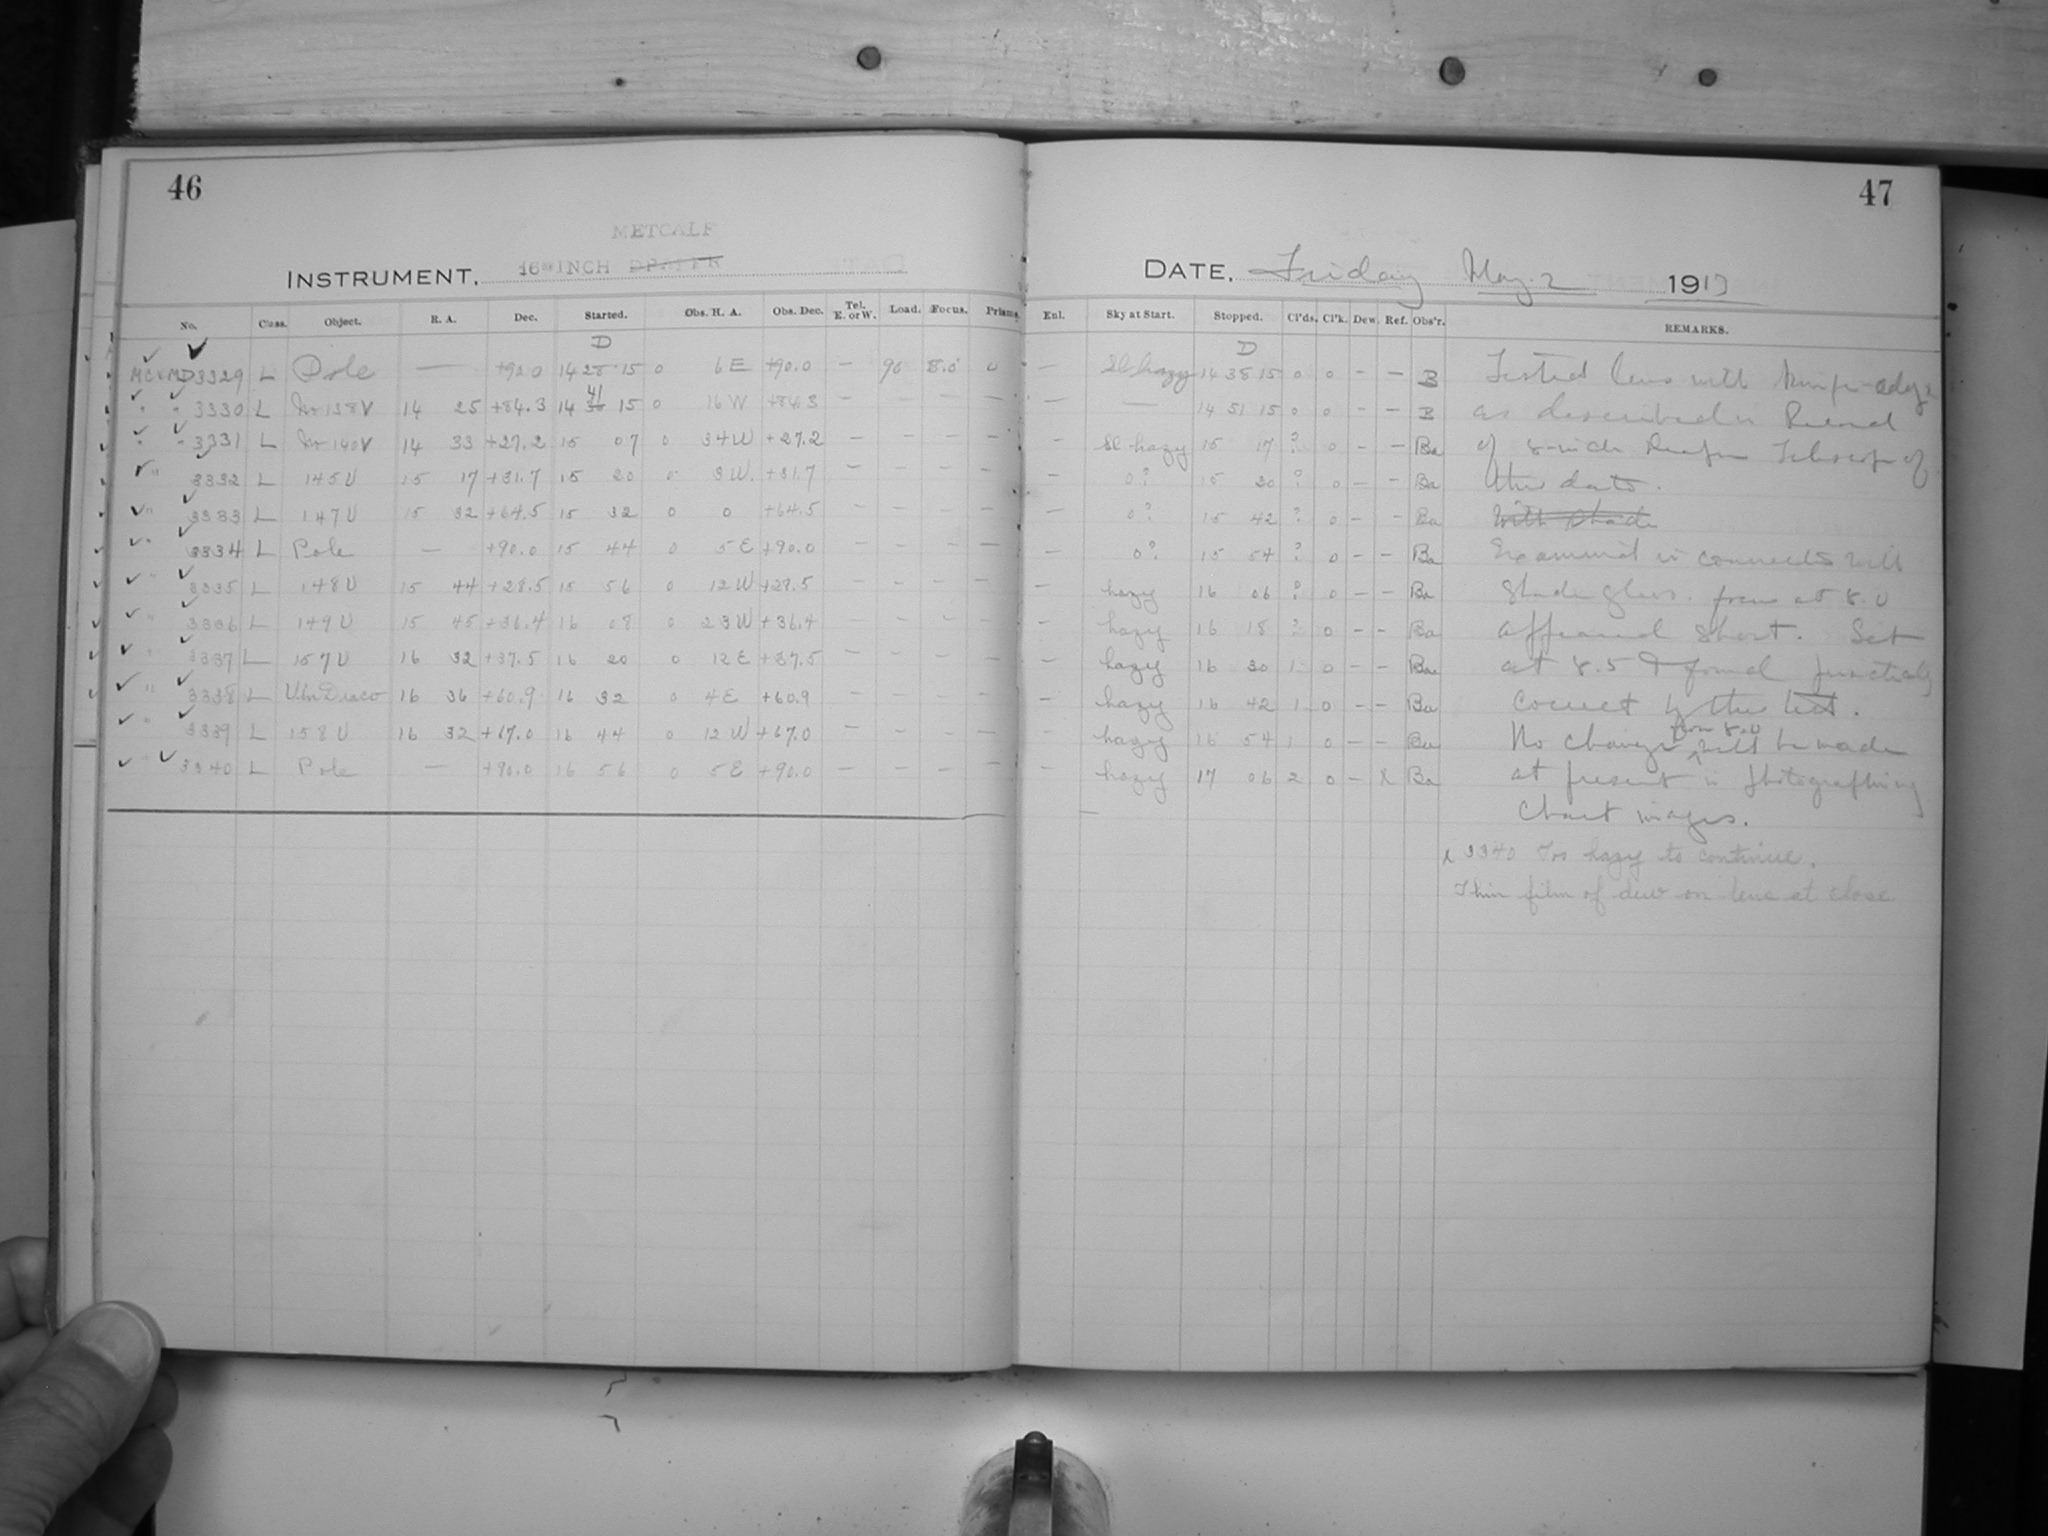 46
METCALF
INSTRUMENT, 16 INCH DRAPER
No. Class. Object. R. A. Dec. Started. Obs. H. A. Obs. Dec. Tel. E. or W. Load. Focus. Prisms.
D
3329 L Pole — +90.0 14 28 15 0 6 E +90.0 — 90 8.0
41
3330 L No 138V 14 25 +84.3 14 15 0 16 W +84.3 — — — —
3331 L No 140V 14 33 +27.2 15 07 0 34 W +27.2 — — — —
3332 L 145U 15 17 +31.7 15 20 0 3 W. +31.7 — — — —
3333 L 147U 15 32 +64.5 15 32 0 0 +64.5 — — — —
3334 L Pole — +90.0 15 44 0 5 E +90.0 — — — —
3335 L 148U 15 44 +28.5 15 56 0 12 W +28.5 — — — —
3336 L 149U 15 45 +36.4 16 08 0 23 W +36.4 — — — —
3337 L 157U 16 32 +37.5 16 20 0 12 E +37.5 — — — —
3338 L Draco 16 36 +60.9 16 32 0 4 E +60.9 — — — —
3339 L 158U 16 32 +67.0 16 44 0 12 W +67.0 — — — —
3340 L Pole — +90.0 16 56 0 5 E +90.0 — — — —
47
DATE, Friday May 2 1919
Enl. Sky at Start. Stopped. Cl'ds. Cl'k. Dew. Ref. Obs'r. REMARKS.
D
— Sl hazy 14 38 15 0 0 – – B Tested lens with knife-edge
— — 14 51 15 0 0 – – B as described in Record
— Sl hazy 15 17 ? 0 – – Ba of 8-inch Telescope of
— 0? 15 30 ? 0 – – Ba this date.
— 0? 15 42 ? 0 – – Ba With shade
— 0? 15 54 ? 0 – – Ba Examined in connection with
— hazy 16 06 ? 0 – – Ba Shade glass. focus at 8.0
— hazy 16 18 ? 0 – – Ba appeared short. Set
— hazy 16 30 1 0 – – Ba at 8.5 & found practically
— hazy 16 42 1 0 – – Ba correct by this test.
from 8.0
— hazy 16 54 1 0 – – Ba No change will be made
— hazy 17 06 2 0 – x Ba at present in photographing
Chart images.
x 3340 Too hazy to continue.
Thin film of dew on lens at close